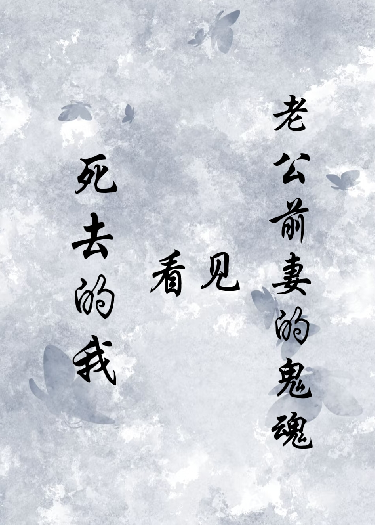 死去的我
看见
老公前妻的鬼魂